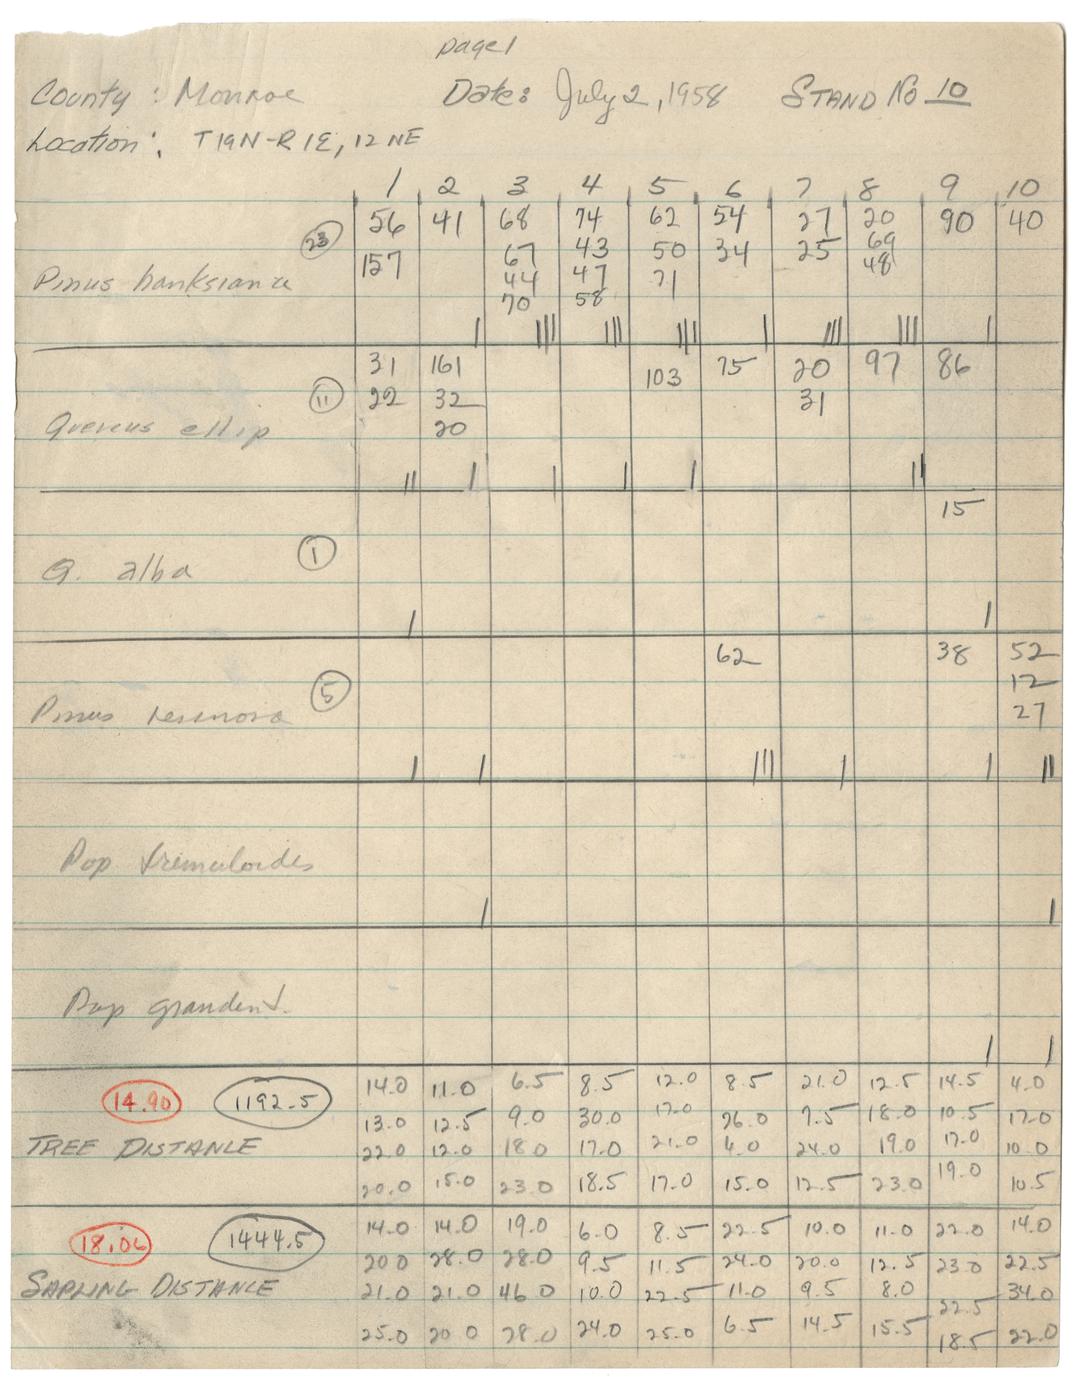 page 1
County : Monroe Date: July 2, 1958 STAND No 10
Location: T19N-R1E, 12 NE
1 2 3 4 5 6 7 8 9 10
56 41 68 74 62 54 27 20 90 40
23 67 43 50 34 25 69
157 44 47 71 48
Pinus banksiana
70 58
| |||| |||| |||| | |||| |||| |
31 161 103 75 20 97 86
11 22 32 31
Quercus ellip 20
|| | | | | ||
15
1
Q. alba
| |
62 38 52
5 12
Pinus resinosa 27
| | ||| | | ||
Pop tremuloides
| |
Pop grandent.
| |
14.0 11.0 6.5 8.5 12.0 8.5 21.0 12.5 14.5 4.0
14.90 1192.5 13.0 12.5 9.0 30.0 17.0 26.0 7.5 18.0 10.5 17.0
TREE DISTANCE 22.0 12.0 18.0 17.0 21.0 4.0 24.0 19.0 17.0 10.0
20.0 15.0 23.0 18.5 17.0 15.0 12.5 23.0 19.0 10.5
14.0 14.0 19.0 6.0 8.5 22.5 10.0 11.0 22.0 14.0
18.06 1444.5 20.0 28.0 28.0 9.5 11.5 24.0 20.0 12.5 23.0 22.5
SAPLING DISTANCE 21.0 21.0 46.0 10.0 22.5 11.0 9.5 8.0 22.5 34.0
25.0 20.0 28.0 24.0 25.0 6.5 14.5 15.5 18.5 22.0